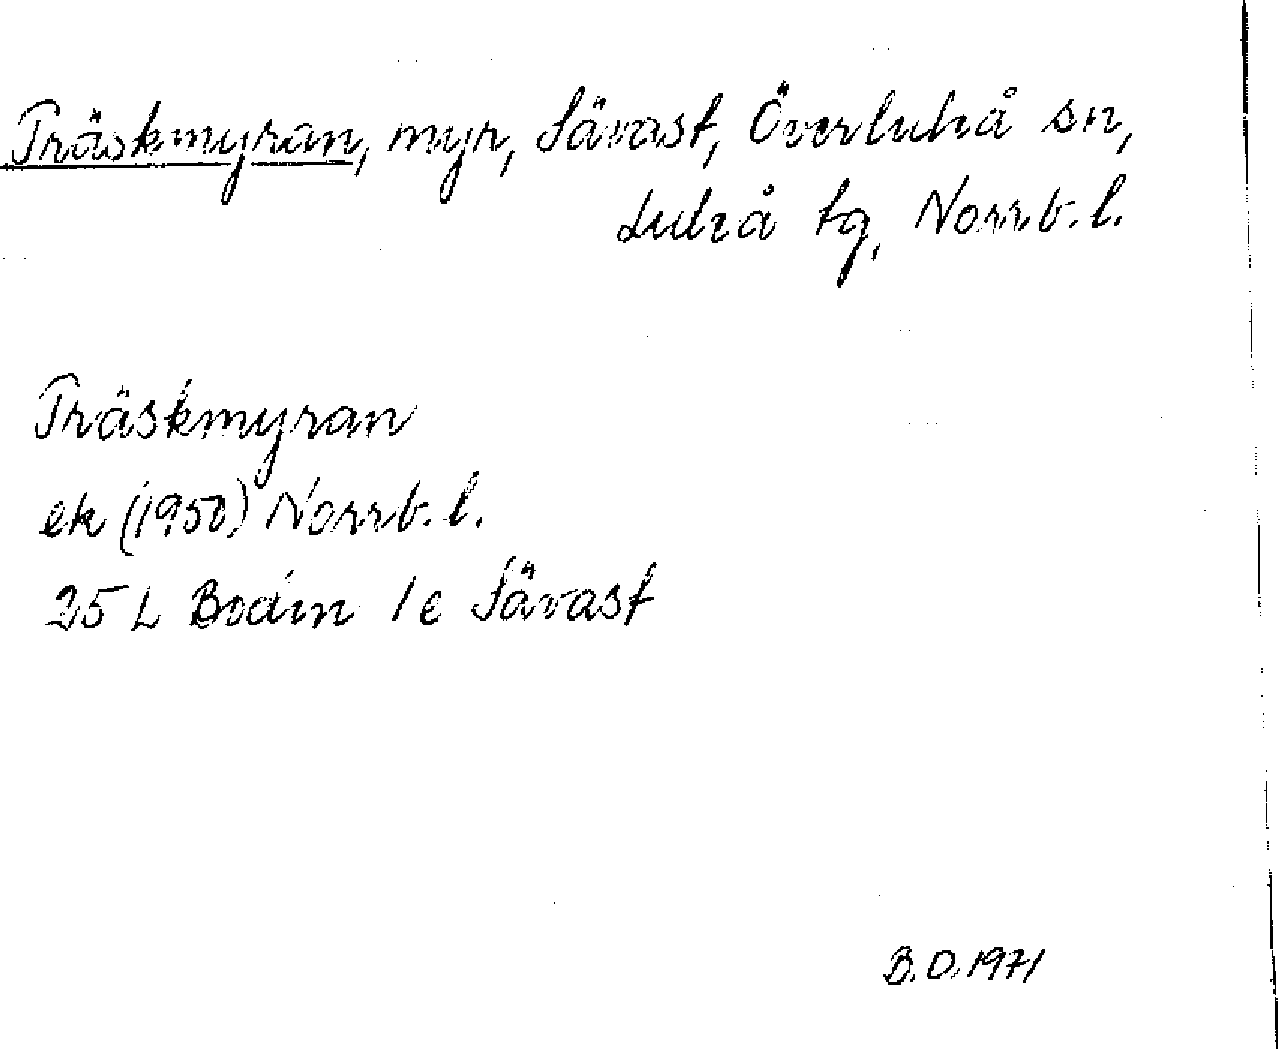 Träskmyran, myr, Sävast, Överluleå sn,
Luleå tg, Norrb. l.
Träskmyran
ek (1950) Norrb. l.
25 L Boden 1 e Sävast
B.O. 1971